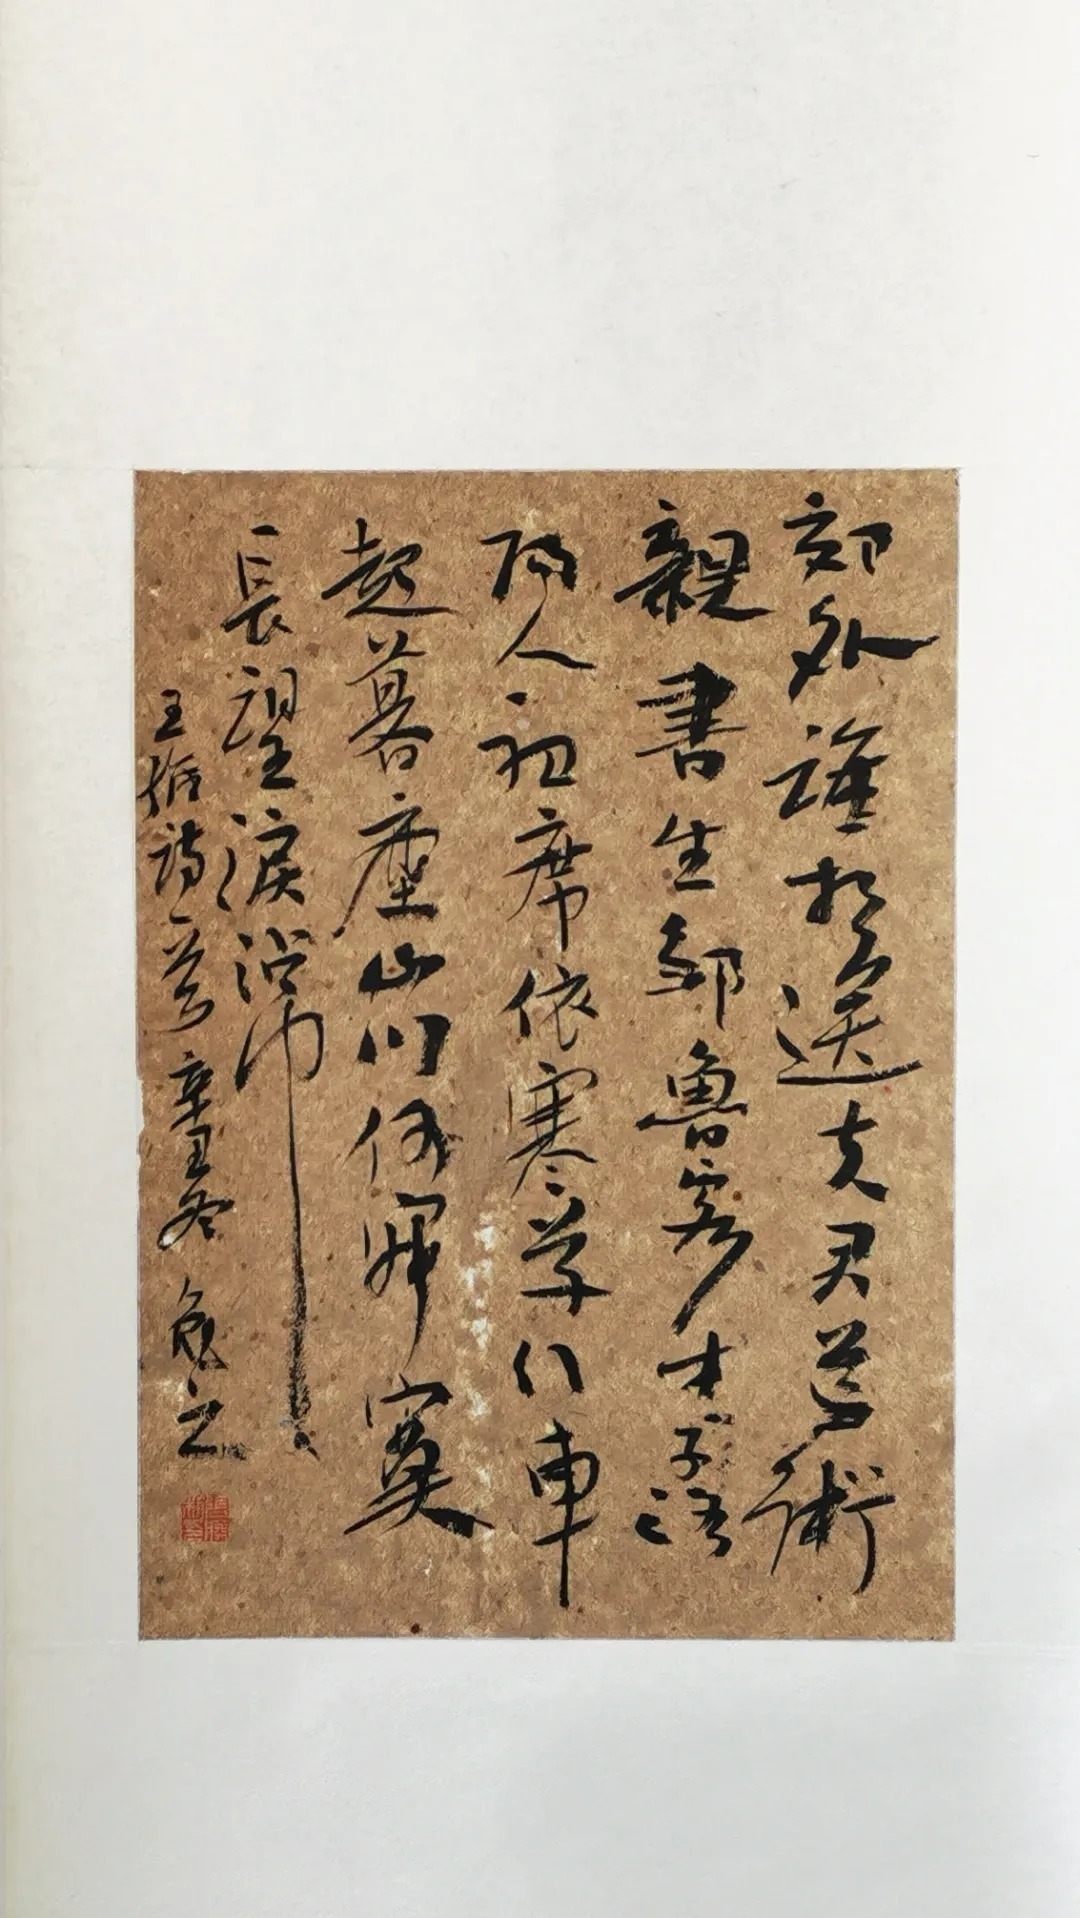 郊外誰相送夫君道術
親書生鄒魯客才子洛
陽人祖席依寒草行車
起暮塵山川何寂寞
長望淚沾巾
王維詩一首 辛丑冬 之